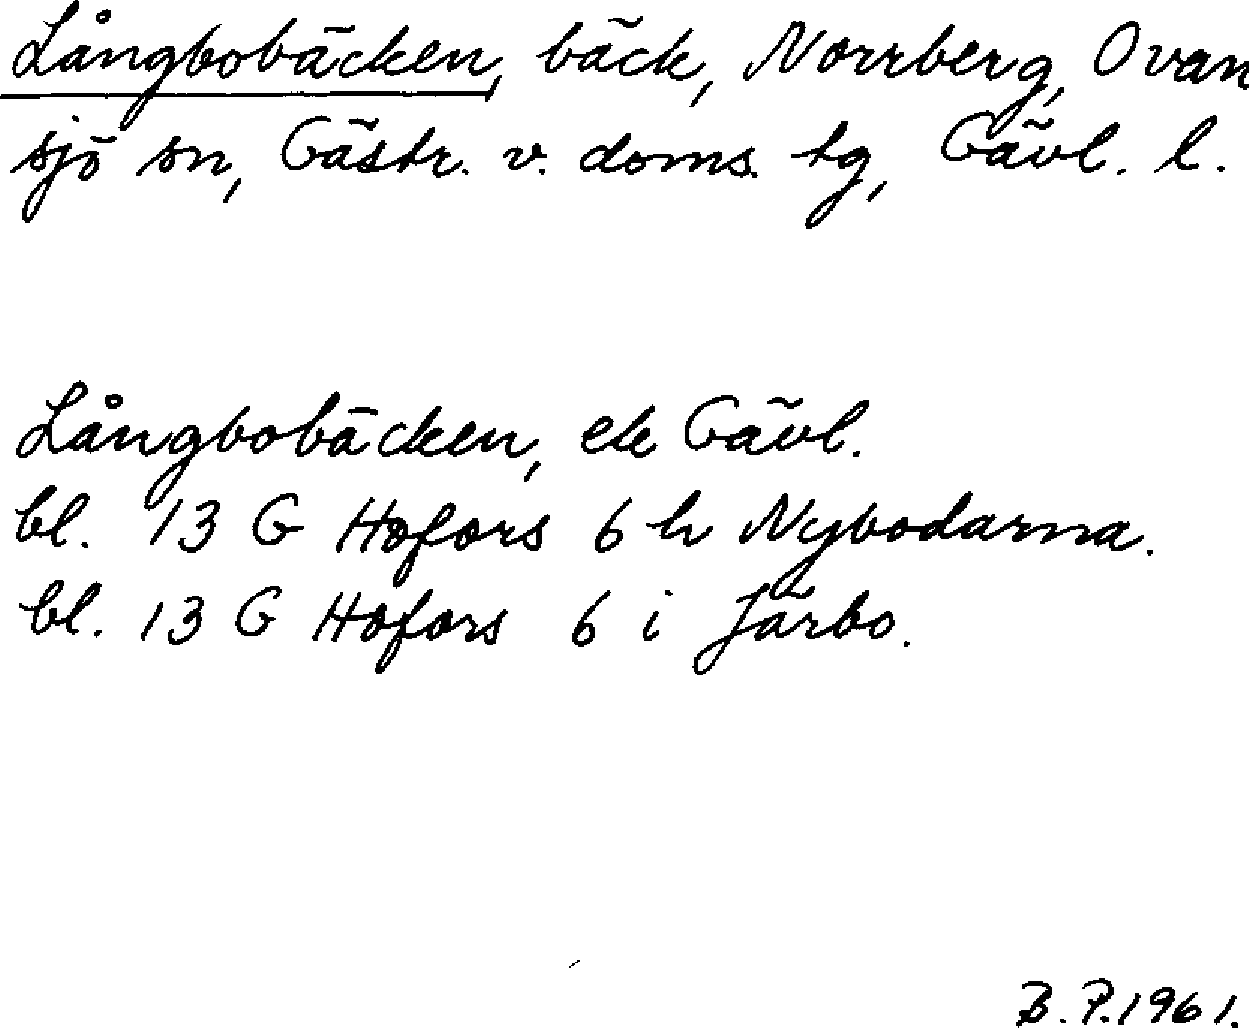 Långbobäcken, bäck, Norrberg, Ovan
sjö sn, Gästr. v. doms. tg, Gävl. l.
Långbobäcken, ek Gävl.
bl. 13 G Hofors 6 h Nybodarna.
bl. 13 G Hofors 6 i Järbo.
B. P. 1961.